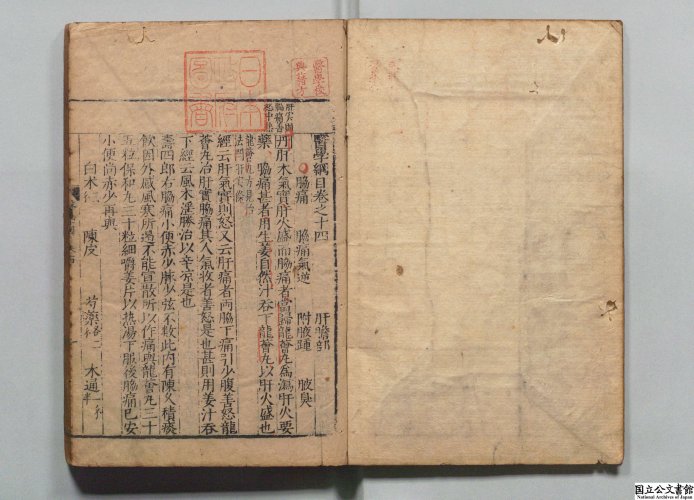 醫學綱目卷之十四 肝膽部
脇痛 脇痛氣逆 附腋腫 腋臭
丹肝木氣實肝火盛而脇痛者當歸龍薈丸為瀉肝火要
藥 脇痛甚者用生姜自然汁吞丁龍薈丸以肝火盛也
經云肝氣實則怒又云肝痛者兩脇下痛引少腹善怒龍
薈丸治肝實脇痛其人氣收者善怒是也甚則用姜汁吞
下經云風木淫勝治以辛凉是也
壽四郎右脇痛小便赤少脉少弦不数此內有陳久積痰
飲因外感風寒所遏不能宣散所以作痛與龍薈丸三十
五粒保和丸三十粒細嚼姜片以热湯下服後脇痛已安
小便尚赤少再與
白术 陳皮 芍藥 木通
醫學校
典籍方
日本
政府
圖書
国立公文書館
National Archives of Japan